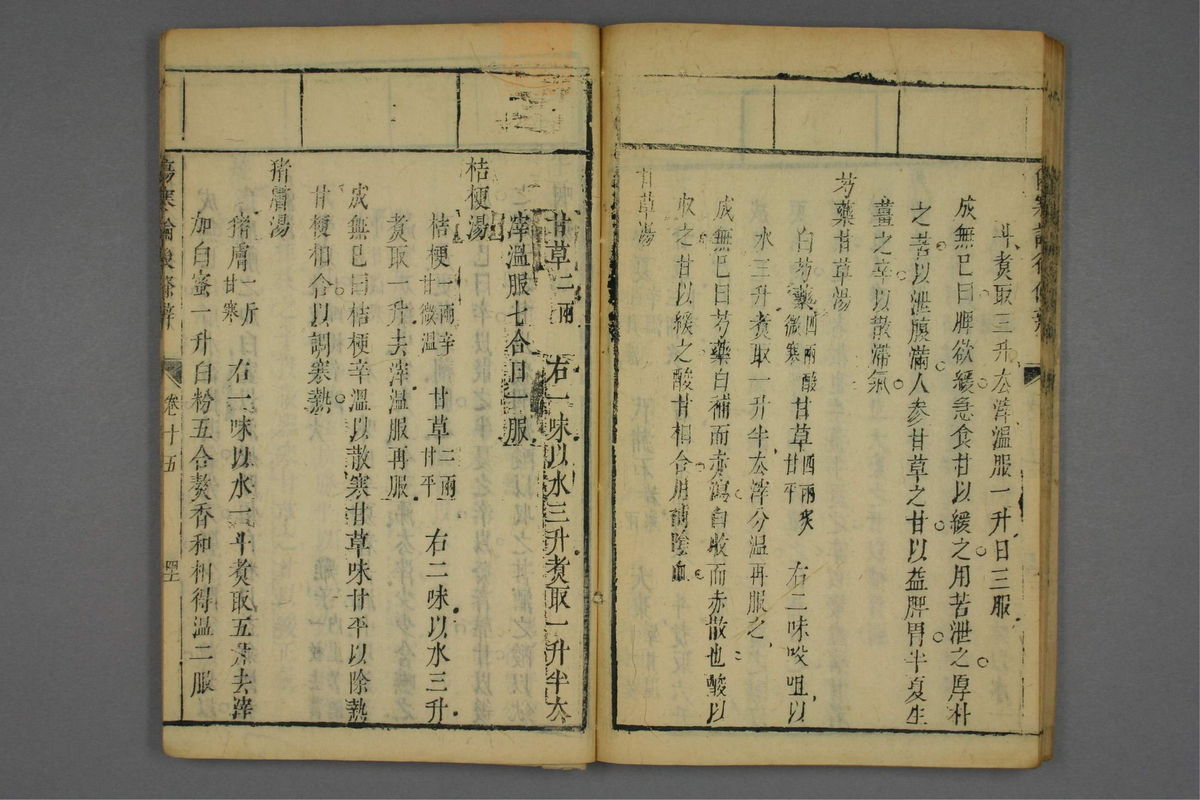 斗煑取三升去滓溫服一升日三服
成無巳曰脾欲緩急食甘以緩之用苦泄之厚朴
之苦以泄腹滿人參甘草之甘以益脾胃半夏生
薑之辛以散滯氣
芍藥甘草湯
白芍藥四兩酸微寒甘草四兩炙甘平 右二味㕮咀以
水三升煑取一升半去滓分温再服之
成無巳曰芍藥白補而赤瀉白收而赤散也酸以
收之甘以緩之酸甘相合用補陰血
甘草湯
甘草二兩 右一味以水三升煑取一升半去
滓溫服七合日二服
桔梗湯
桔梗一兩辛微温 甘草二兩甘平 右二味以水三升
煑取一升去滓温服再服
成無巳曰桔梗辛溫以散寒甘草味甘平以除熱
甘梗相合以調寒熱
猪膚湯
猪膚二斤甘寒 右一味以水一斗煑取五升去滓
加白蜜一升白粉五合熬香和相得温二服
傷寒論後條辨 卷十五